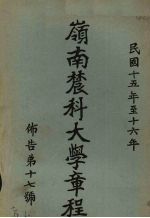 民國十五年至十六年
嶺南農科大學章程
佈告第十七號